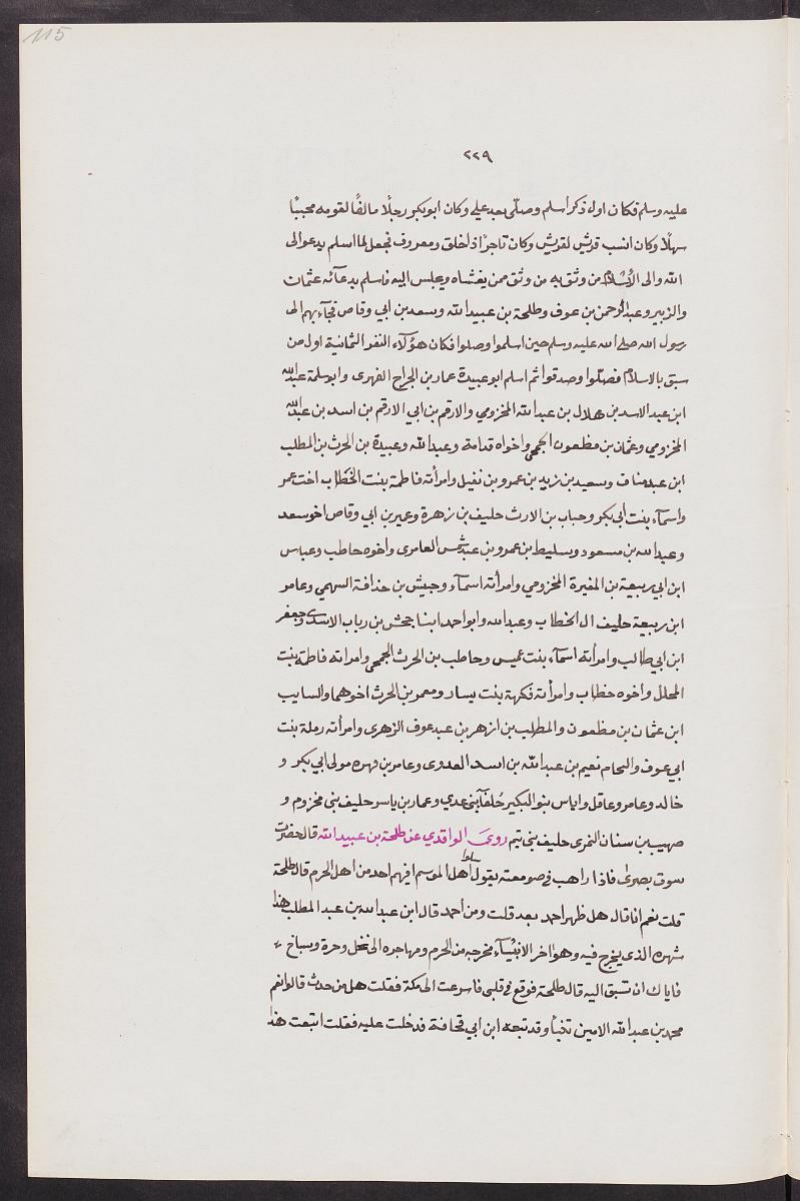 115
٢٢٩
عليه وسلم فكان اول ذكر اسلم وصلى بعد علي وكان ابو بكر رجلًا مالفًا لقومه محببًا
سهلًا وكان انسب قريش لقريش وكان تاجرًا ذا خلق ومعروف فجعل لما اسلم يدعو الى
الله والى الاسلام من وثق به من وثق ممن يغشاه ويجلس اليه فاسلم بدعائه عثمان
والزبير وعبد الرحمن بن عوف وطلحة بن عبيد الله وسعد بن ابي وقاص فجاء بهم الى
رسول الله صلى الله عليه وسلم حين اسلموا وصلوا فكان هؤلاء النفر الثمانية اول من
سبق بالاسلام فصلوا وصدقوا ثم اسلم ابو عبيدة عمار بن الجراح الفهرى وابو سلمة عبد الله
ابن عبد الاسد بن هلال بن عبد الله المخزومي والارقم بن ابي الارقم بن اسد بن عبد الله
المخزومي وعثمان بن مظعون الجمحى واخواه قدامة وعبد الله وعبيدة بن الحرث بن المطلب
ابن عبد مناف وسعيد بن زيد بن عمرو بن نفيل وامرأته فاطمة بنت الخطاب اخت عمر
واسماء بنت ابي بكر وحباب بن الارث حليف بن زهرة وعمير بن ابي وقاص اخو سعد
وعبد الله بن مسعود وسليط بن عمرو بن عبد شمس العامرى واخوه حاطب وعباس
ابن ابي ربيعة بن المغيرة المخزومي وامرأته اسماء وجيش بن حذافة السهمي وعامر
ابن ربيعة حليف ال الخطاب وعبد الله وابو احمد ابنا جحش بن رباب الاسدى وجعفر
ابن ابي طالب وامرأته اسماء بنت عميس وحاطب بن الحرث الجمحى وامراته فاطمة بنت
المحلل واخوه خطاب وامرأته فكيهة بنت يسار ومعمر بن الحرث اخوهما والسايب
ابن عثمان بن مظعون والمطلب بن ازهر بن عبد عوف الزهرى وامرأته رملة بنت
ابي عوف والنحام نعيم بن عبد الله بن اسد العدوى وعامر بن فهره مولى ابي بكر و
خالد وعامر وعاقل واياس بنو البكير حلفآبنى عدي وعمار بن ياسر حليف بنى مخزوم و
صهيب بن سنان النمرى حليف بنى تيم روى الواقدي عن طلحة بن عبيد الله قال حضرت
سوق بصرى فاذا راهب في صومعته يقول سلوا اهل الموسم افيهم احد من اهل الحرم قال طلحة
قلت نعم انا قال هل ظهر احمد بعد قلت ومن أحمد قال ابن عبد الله بن عبد المطلب هذا
شهره الذى يخرج فيه وهو اخر الانبياء مخرجه من الحرم ومهاجره الى نخل وحرة وسباخ
فاياك ان تسبق اليه قال طلحة فوقع في قلبى فاسرعت الى مكة فقلت هل من حدث قالوا نعم
محمد بن عبد الله الامين تنبأ وقد تبعه ابن ابي قحافة فدخلت عليه فقلت اتبعت هذا